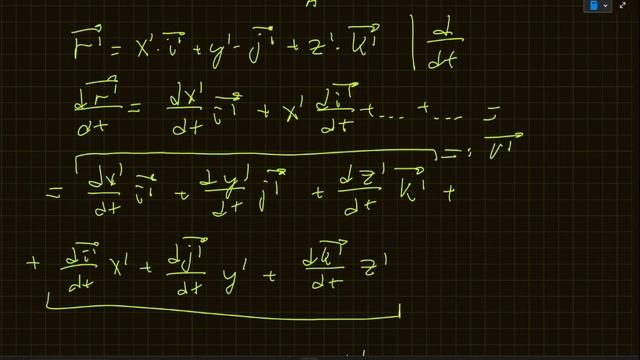 r⃗' = x'·i⃗' + y'·j⃗' + z'·k⃗' | d/dt
dr⃗'/dt = dx'/dt i⃗' + x' di⃗'/dt + ... + ... =
= dx'/dt i⃗' + dy'/dt j⃗' + dz'/dt k⃗' +
=: v⃗'
+ di⃗'/dt x' + dj⃗'/dt y' + dk⃗'/dt z'